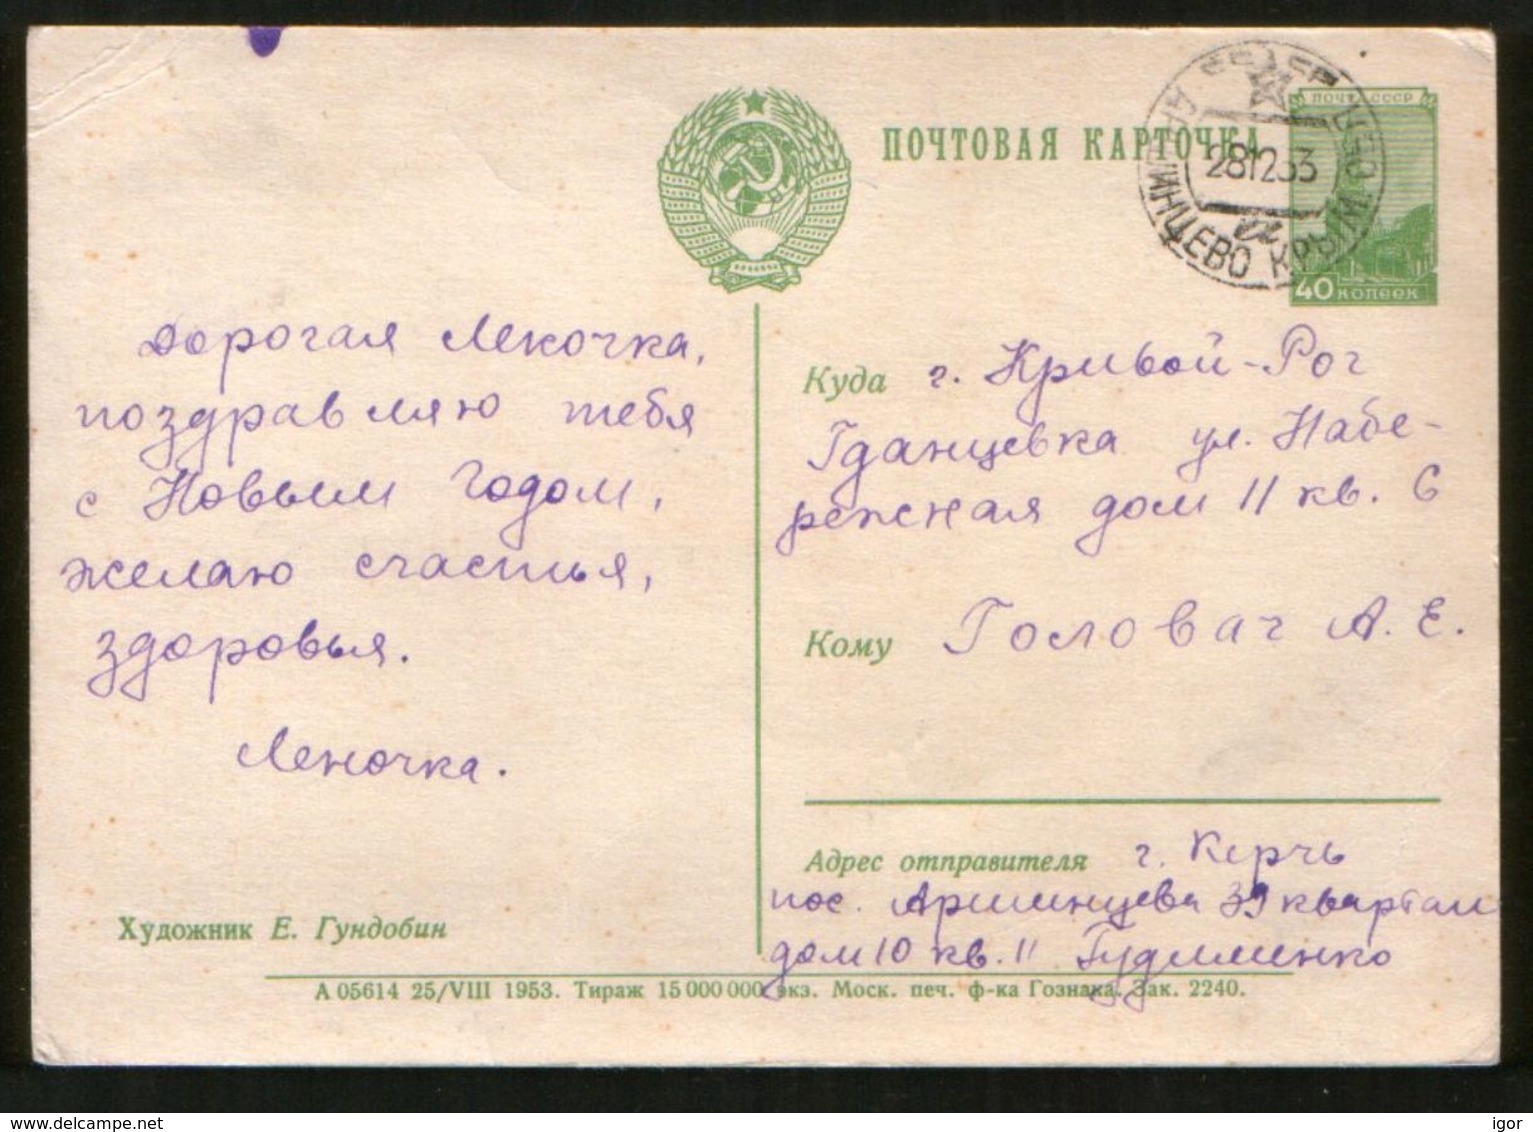 ПОЧТОВАЯ КАРТОЧКА
ПОЧТА СССР
40 КОПЕЕК
28 12 53
АРШИНЦЕВО КРЫМ
Дорогая Лекочка,
поздравляю тебя
с Новым Годом,
желаю счастья,
здоровья.
Леночка.
Художник Е. Гундобин
Куда г. Кривой-Рог
Гданцевка ул. Набе-
режная дом 11 кв. 6
Кому Головач А. Е.
Адрес отправителя г. Керчь
пос. Аршинцева 39 квартал
дом 10 кв. 11 Гудименко
А 05614 25/VIII 1953. Тираж 15 000 000 экз. Моск. печ. ф-ка Гознака. Зак. 2240.
igor